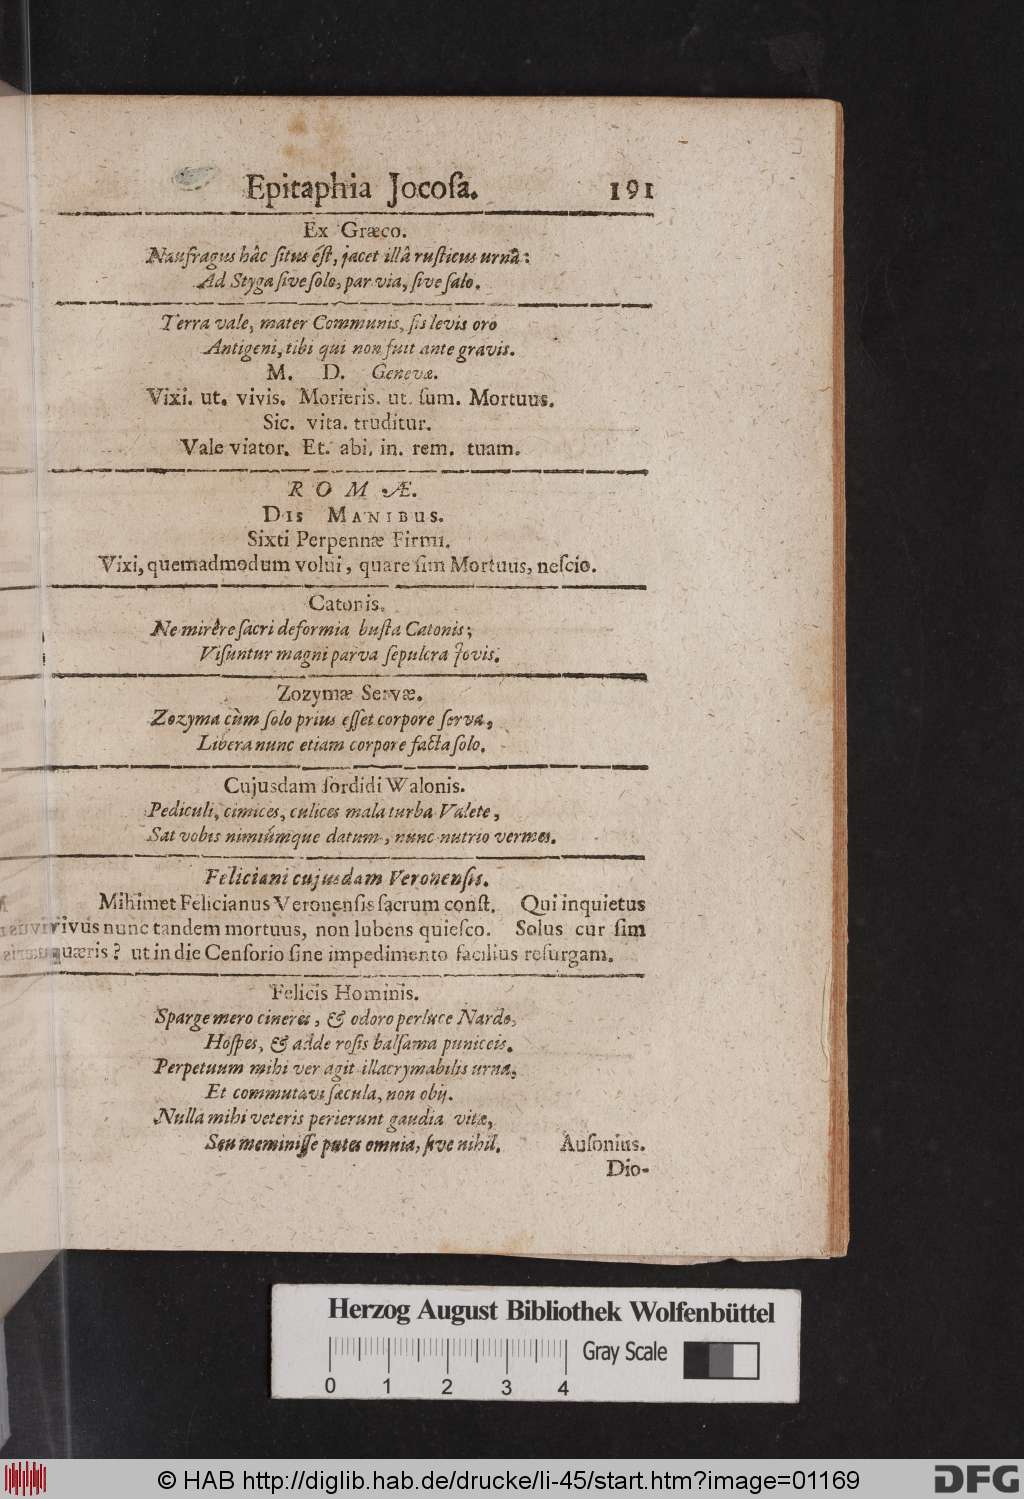 Epitaphia Jocoſa. 191
Ex Græco.
Naufragus hâc ſitus eſt, jacet illâ ruſticus urnâ:
Ad Styga ſive ſolo, par via, ſive ſalo.
Terra vale, mater Communis, ſis levis oro
Antigeni, tibi qui non fuit ante gravis.
M. D. Genevæ.
Vixi. ut. vivis. Morieris. ut. ſum. Mortuus.
Sic. vita. truditur.
Vale viator. Et. abi. in. rem. tuam.
ROMÆ.
DIS MANIBUS.
Sixti Perpennæ Firmi.
Vixi, quemadmodum volui, quare ſim Mortuus, neſcio.
Catonis.
Ne mirêre ſacri deformia buſta Catonis;
Viſuntur magni parva ſepulcra Jovis.
Zozymæ Servæ.
Zozyma cùm ſolo prius eſſet corpore ſerva,
Libera nunc etiam corpore facta ſolo.
Cujusdam ſordidi Walonis.
Pediculi, cimices, culices mala turba Valete,
Sat vobis nimiúmque datum, nunc nutrio vermes.
Feliciani cujusdam Veronenſis.
Mihimet Felicianus Veronenſis ſacrum conſt. Qui inquietus
vivus nunc tandem mortuus, non lubens quieſco. Solus cur ſim
quæris? ut in die Cenſorio ſine impedimento facilius reſurgam.
Felicis Hominis.
Sparge mero cineres, & odoro perluce Nardo,
Hoſpes, & adde roſis balſama puniceis.
Perpetuum mihi ver agit illacrymabilis urna,
Et commutavi ſæcula, non obij.
Nulla mihi veteris perierunt gaudia vitæ,
Seu meminiſſe putes omnia, ſive nihil. Auſonius.
Dio-
Herzog August Bibliothek Wolfenbüttel
Gray Scale
0 1 2 3 4
© HAB http://diglib.hab.de/drucke/li-45/start.htm?image=01169
DFG